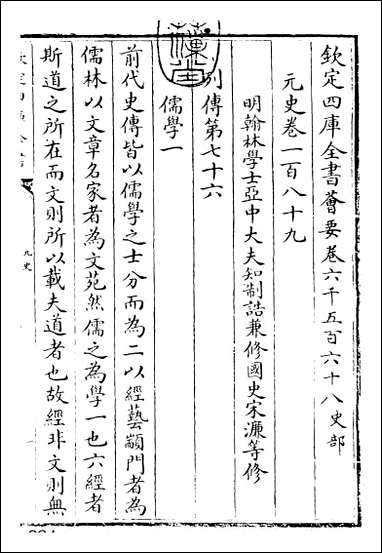 欽定四庫全書薈要卷六千五百六十八史部
元史卷一百八十九
明翰林學士亞中大夫知制誥兼修國史宋濂等修
列傳第七十六
儒學一
前代史傳皆以儒學之士分而為二以經藝顓門者為
儒林以文章名家者為文苑然儒之為學一也六經者
斯道之所在而文則所以載夫道者也故經非文則無
元史